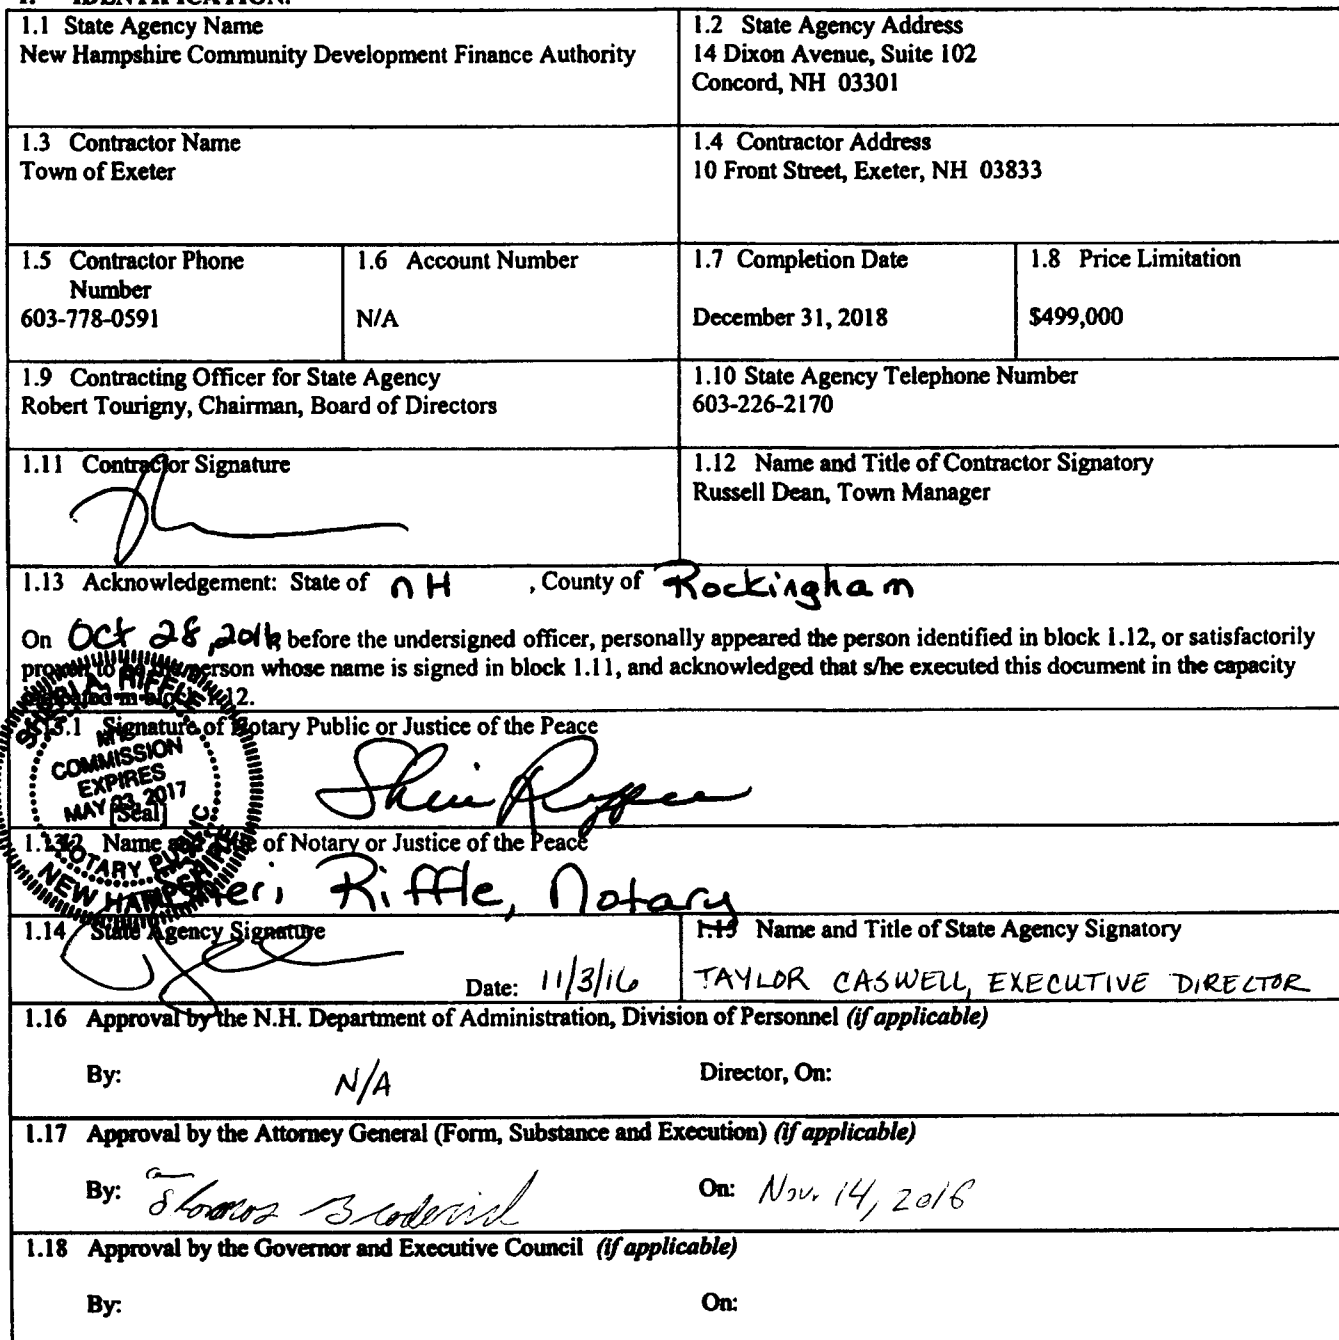 1. IDENTIFICATION.
1.1 State Agency Name
New Hampshire Community Development Finance Authority
1.2 State Agency Address
14 Dixon Avenue, Suite 102
Concord, NH 03301
1.3 Contractor Name
Town of Exeter
1.4 Contractor Address
10 Front Street, Exeter, NH 03833
1.5 Contractor Phone
Number
603-778-0591
1.6 Account Number
N/A
1.7 Completion Date
December 31, 2018
1.8 Price Limitation
$499,000
1.9 Contracting Officer for State Agency
Robert Tourigny, Chairman, Board of Directors
1.10 State Agency Telephone Number
603-226-2170
1.11 Contractor Signature
1.12 Name and Title of Contractor Signatory
Russell Dean, Town Manager
1.13 Acknowledgement: State of NH , County of Rockingham
On Oct 28, 2016 before the undersigned officer, personally appeared the person identified in block 1.12, or satisfactorily
proven to be the person whose name is signed in block 1.11, and acknowledged that s/he executed this document in the capacity
indicated in block 1.12.
1.13.1 Signature of Notary Public or Justice of the Peace
SHERI A. RIFFLE
NH
COMMISSION
EXPIRES
MAY 03, 2017
[Seal]
NOTARY PUBLIC
NEW HAMPSHIRE
Sheri Riffle
1.13.2 Name and Title of Notary or Justice of the Peace
Sheri Riffle, Notary
1.14 State Agency Signature
Date: 11/3/16
1.15 Name and Title of State Agency Signatory
TAYLOR CASWELL, EXECUTIVE DIRECTOR
1.16 Approval by the N.H. Department of Administration, Division of Personnel (if applicable)
By: N/A Director, On:
1.17 Approval by the Attorney General (Form, Substance and Execution) (if applicable)
By: On: Nov. 14, 2016
1.18 Approval by the Governor and Executive Council (if applicable)
By: On: